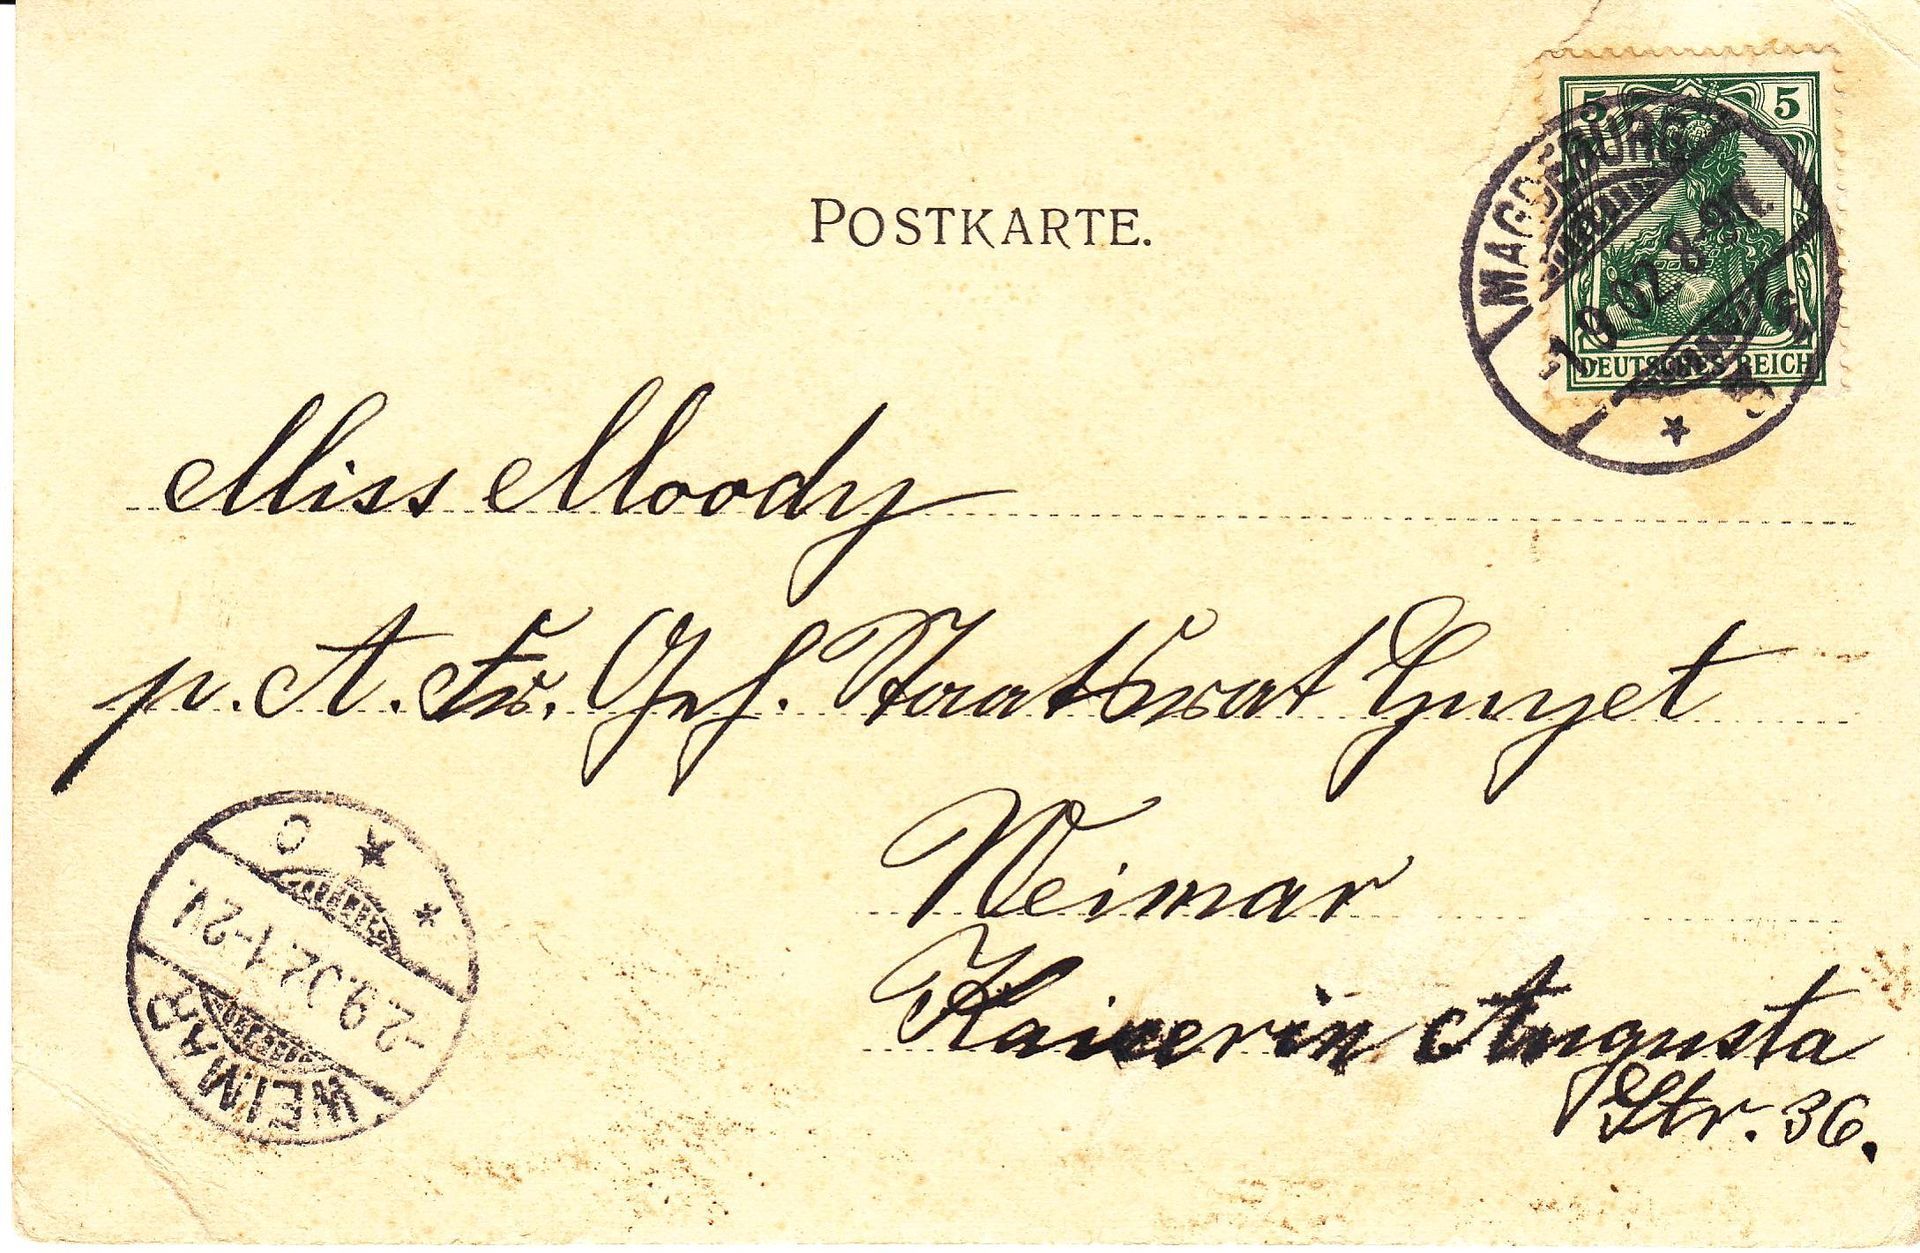 5 5
DEUTSCHES REICH
MAGDEBURG
1.9.02 8-9N.
POSTKARTE.
Miss Moody
p. A. Fr. Geh. Staatsrat Guyet
Weimar
Kaiserin Augusta
Str. 36.
WEIMAR
-2.9.02.1-2V.
C